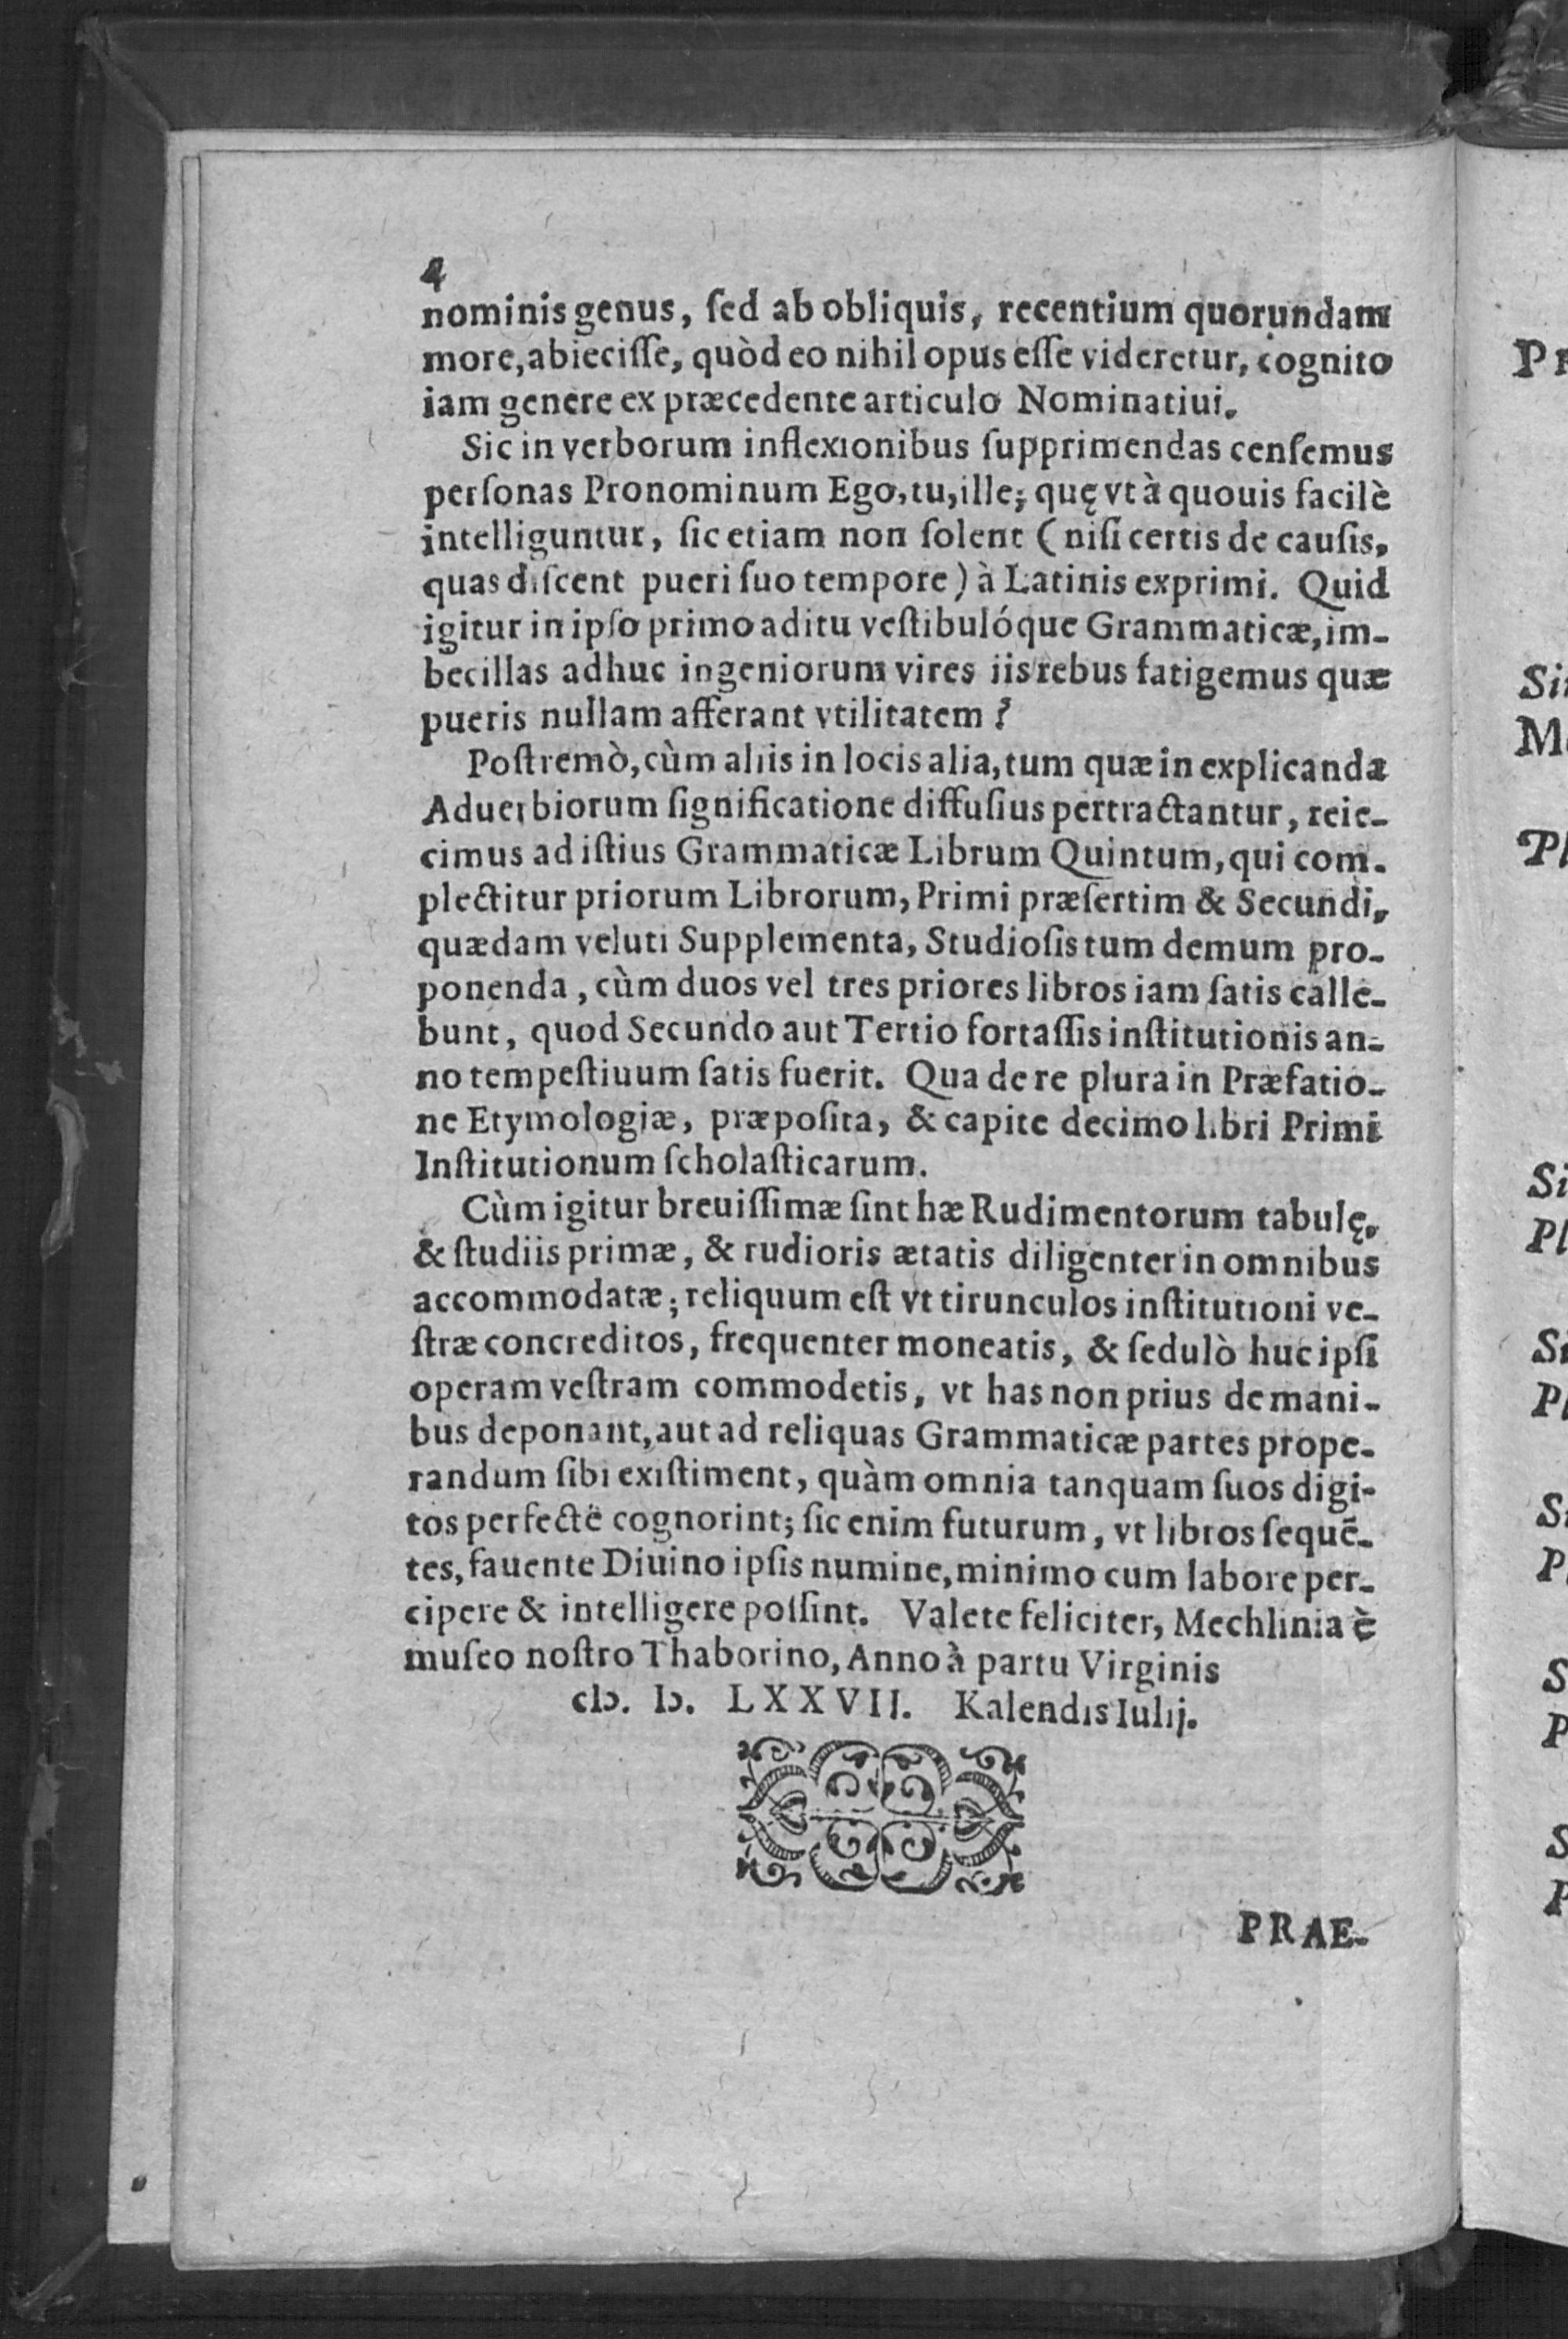 4
nominis genus, ſed ab obliquis, recentium quorundam
more, abieciſſe, quòd eo nihil opus eſſe videretur, cognito
iam genere ex præcedente articulo Nominatiui.
Sic in verborum inflexionibus ſupprimendas cenſemus
perſonas Pronominum Ego, tu, ille; quę vt à quouis facilè
intelliguntur, ſic etiam non ſolent (niſi certis de cauſis,
quas diſcent pueri ſuo tempore) à Latinis exprimi. Quid
igitur in ipſo primo aditu veſtibulóque Grammaticæ, im-
becillas adhuc ingeniorum vires iis rebus fatigemus quæ
pueris nullam afferant vtilitatem?
Poſtremò, cùm aliis in locis alia, tum quæ in explicanda
Aduerbiorum ſignificatione diffuſius pertractantur, reie-
cimus ad iſtius Grammaticæ Librum Quintum, qui com-
plectitur priorum Librorum, Primi præſertim & Secundi,
quædam veluti Supplementa, Studioſis tum demum pro-
ponenda, cùm duos vel tres priores libros iam ſatis calle-
bunt, quod Secundo aut Tertio fortaſſis inſtitutionis an-
no tempeſtiuum ſatis fuerit. Qua de re plura in Præfatio-
ne Etymologiæ, præpoſita, & capite decimo libri Primi
Inſtitutionum ſcholaſticarum.
Cùm igitur breuiſſimæ ſint hæ Rudimentorum tabulę,
& ſtudiis primæ, & rudioris ætatis diligenter in omnibus
accommodatæ; reliquum eſt vt tirunculos inſtitutioni ve-
ſtræ concreditos, frequenter moneatis, & ſedulò huc ipſi
operam veſtram commodetis, vt has non prius de mani-
bus deponant, aut ad reliquas Grammaticæ partes prope-
randum ſibi exiſtiment, quàm omnia tanquam ſuos digi-
tos perfectè cognorint; ſic enim futurum, vt libros ſequē-
tes, fauente Diuino ipſis numine, minimo cum labore per-
cipere & intelligere poſſint. Valete feliciter, Mechlinia è
muſeo noſtro Thaborino, Anno à partu Virginis
cIↄ. Iↄ. LXXVII. Kalendis Iulij.
PRAE-